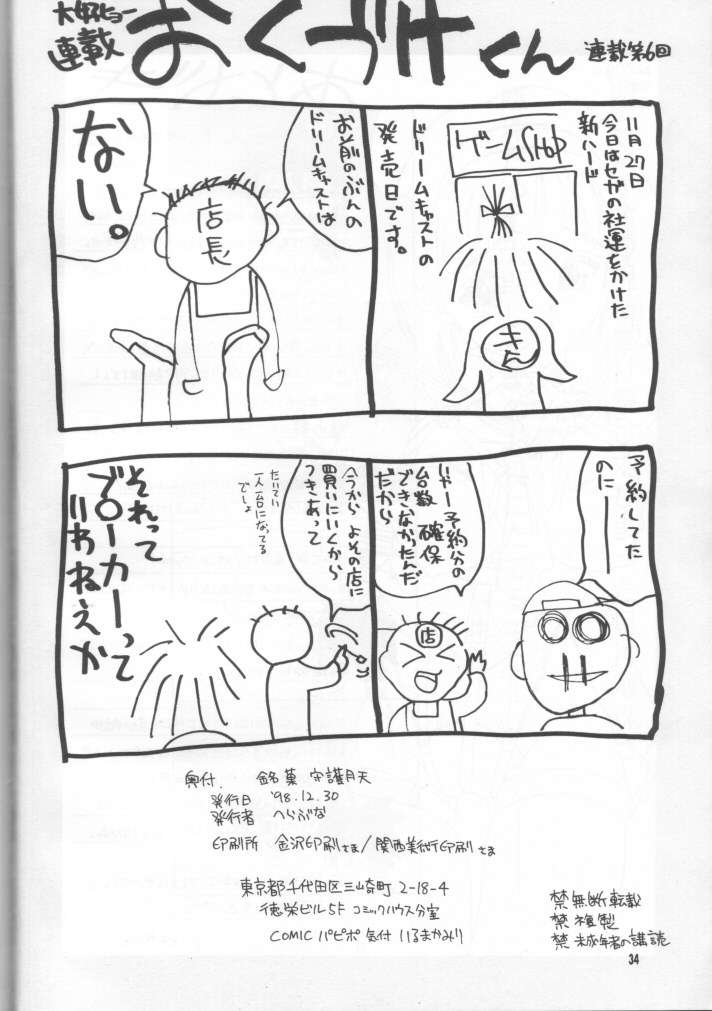 大好ヒョー
連載
おくづけくん
連載第6回
11月27日
今日はセガの社運をかけた
新ハード
ドリームキャストの
発売日です。
ゲームSHOP
きん
お前のぶんの
ドリームキャストは
ない。
店長
予約してた
のにーーー
いやー予約分の
台数確保
できなかったんだ
だから
店
今から よその店に
買いにいくから
つきあって
たいてい
一人一台になってる
でしょ
それって
ブローカーって
いわねえか
奥付. 銘菓 守護月天
発行日 '98.12.30
発行者 へらぶな
印刷所 金沢印刷さま/関西美術印刷さま
東京都千代田区三崎町 2-18-4
徳栄ビル5F コミックハウス分室
COMIC パピポ 気付 いるまかみり
禁 無断転載
禁 複製
禁 未成年者の講読
34